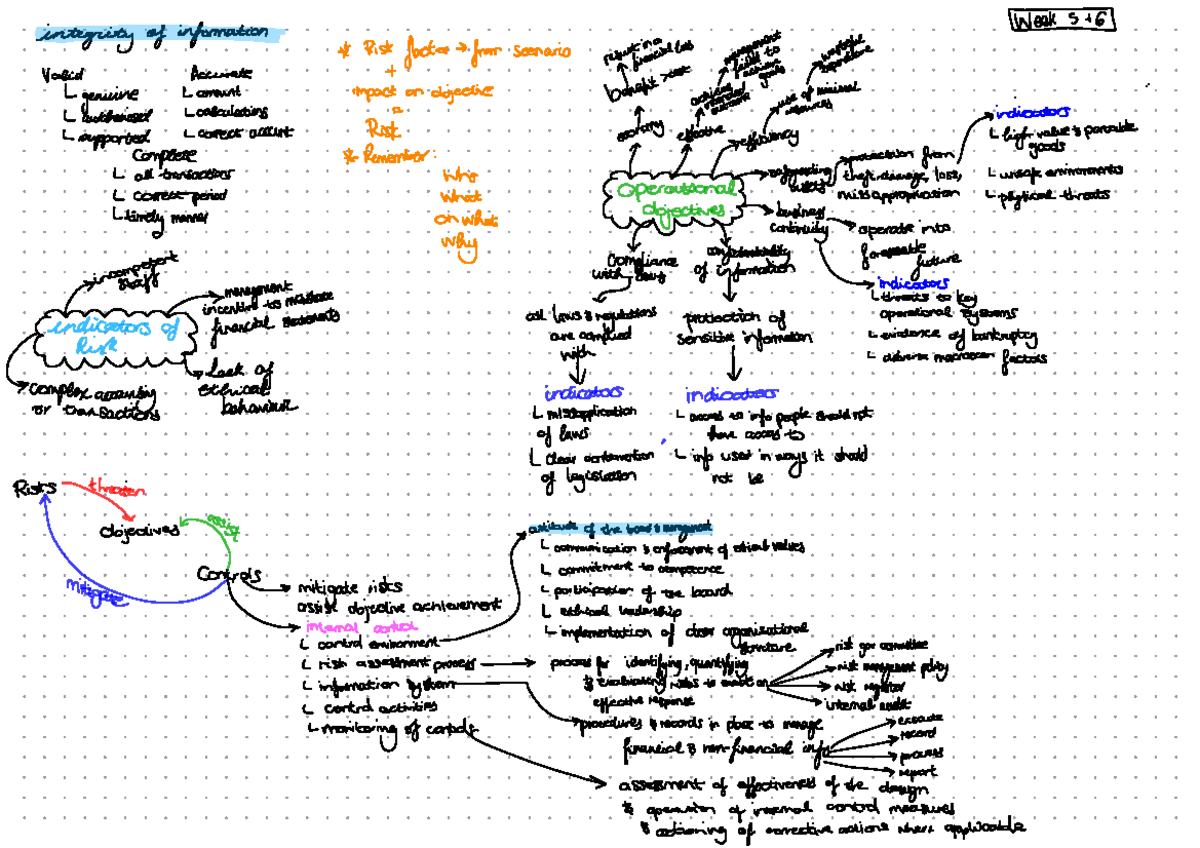 Week 5+6
integrity of information
Valid
genuine
authorised
supported
Accurate
amount
calculations
correct account
Complete
all transactions
correct period
timely manner
* Risk factor → from scenario
+
impact on objective
=
Risk
* Remember:
Who
What
on what
Why
operational
objectives
economy
benefit > cost
result in a
financial loss
effective
achieving
intended
outcome
management
failed to
achieve
goals
efficiency
use of minimal
resources
wasteful
expenditure
safeguarding
assets
protection from
theft, damage, loss,
missappropriation
indicators
high value & portable
goods
unsafe environments
physical threats
business
continuity
operate into
foreseeable
future
indicators
threats to key
operational systems
evidence of bankruptcy
adverse macroecon factors
Compliance
with laws
all laws & regulations
are complied
with
indicators
misapplication
of laws
clear contravention
of legislation
confidentiality
of information
protection of
sensitive information
indicators
access to info people should not
have access to
info used in ways it should
not be
indicators of
Risk
incompetent
staff
management
incentive to misstate
financial statements
Lack of
ethical
behaviour
Complex accounting
or transactions
Risks
threaten
Objectives
assist
Controls
mitigate
mitigate risks
assist objective achievement
internal control
control environment
risk assessment process
information system
control activities
monitoring of controls
attitude of the board & management
communication & enforcement of ethical values
commitment to competence
participation of the board
ethical leadership
implementation of clear organisational
structure
process for identifying, quantifying
& evaluating risks to enable an
effective response
risk gov committee
risk management policy
risk register
internal audit
procedures & records in place to manage
financial & non-financial info
execute
record
process
report
assessment of effectiveness of the design
& operation of internal control measures
& actioning of corrective actions where applicable